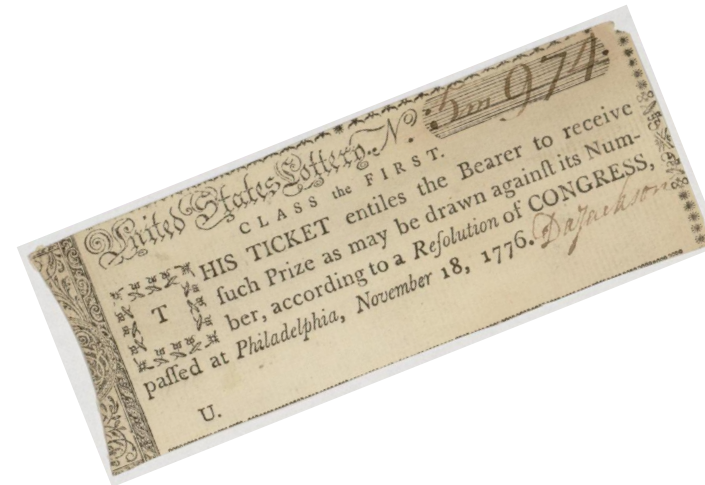 United States Lottery. No. 5m 974.
CLASS the FIRST.
THIS TICKET entiles the Bearer to receive
ſuch Prize as may be drawn againſt its Num-
ber, according to a Reſolution of CONGRESS,
paſſed at Philadelphia, November 18, 1776. Da Jackson
U.